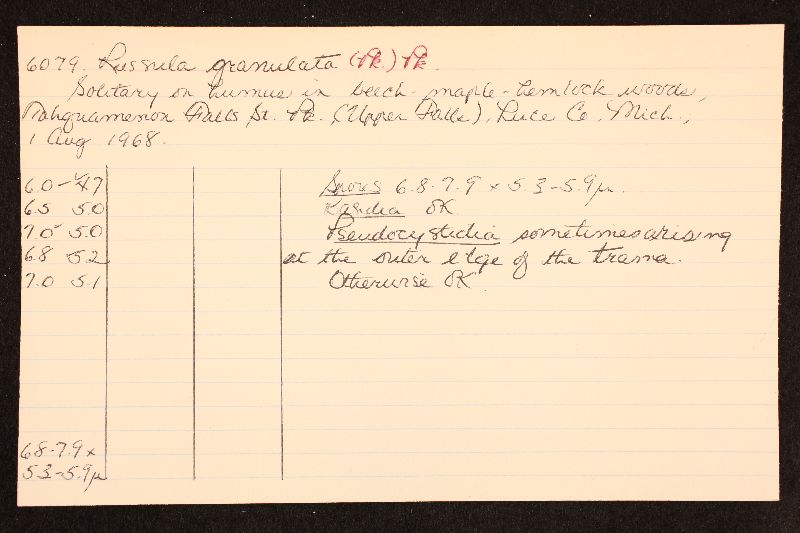 6079. Russula granulata (Pk.) Pk.
Solitary on humus in beech-maple-hemlock woods,
Tahquamenon Falls St. Pk. (Upper Falls), Luce Co. Mich.,
1 Aug 1968.
6.0-4.7
6.5 5.0
7.0 5.0
6.8 5.2
7.0 5.1
6.8-7.9 x
5.3-5.9µ
Spores 6.8-7.9 x 5.3-5.9µ.
Basidia OK
Pseudocystidia sometimes arising
at the outer edge of the trama.
Otherwise OK